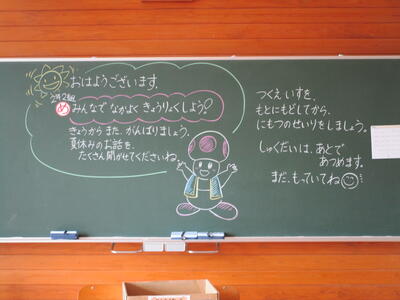 おはようございます
2年2組
め みんなで なかよく きょうりょくしよう!
きょうから また、がんばりましょう。
夏休みのお話を
たくさん聞かせてくださいね。
つくえ、いすを、
もとにもどしてから、
にもつのせいりをしましょう。
しゅくだいは、あとで
あつめます。
まだ、もっていてね